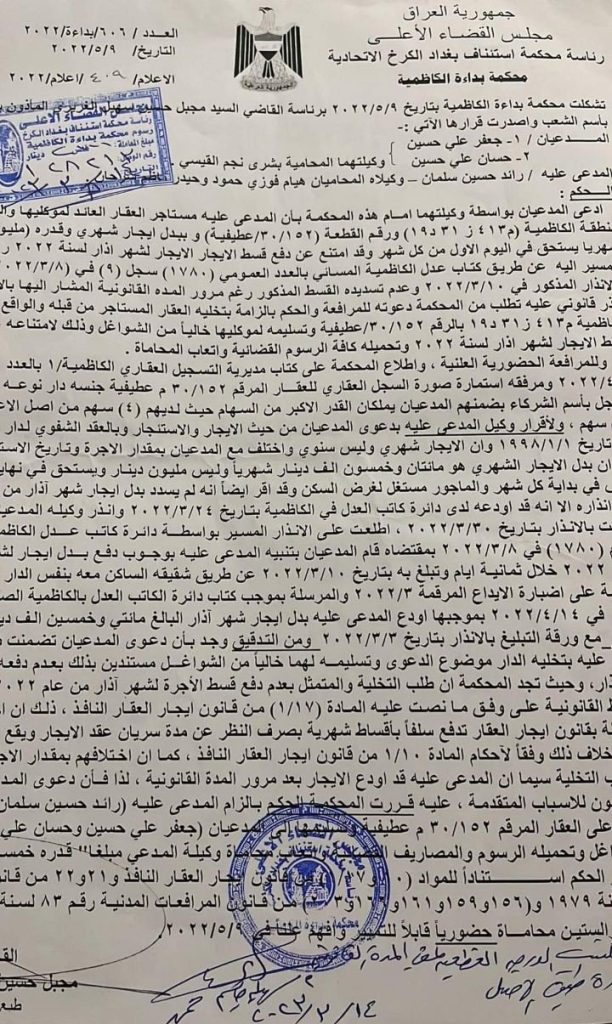 جمهورية العراق
مجلس القضاء الأعلى
رئاسة محكمة استئناف بغداد الكرخ الاتحادية
محكمة بداءة الكاظمية
العدد / ٦٠٦/بداءة/٢٠٢٢
التاريخ / ٢٠٢٢/٥/٩
الاعلام/ ٤٠٩ /اعلام/٢٠٢٢
تشكلت محكمة بداءة الكاظمية بتاريخ ٢٠٢٢/٥/٩ برئاسة القاضي السيد مجبل حسين سهيل الغريري المأذون
بأسم الشعب واصدرت قرارها الآتي :-
المدعيان / ١- جعفر علي حسين
٢- حسان علي حسين
وكيلتهما المحامية بشرى نجم القيسي .
المدعى عليه / رائد حسين سلمان – وكيلاه المحاميان هيام فوزي حمود وحيدر
الحكم :
ادعى المدعيان بواسطة وكيلتهما امام هذه المحكمة بأن المدعى عليه مستأجر العقار العائد لموكليها
نطقة الكاظمية (م٤١٣ ز ٣١ د١٩) ورقم القطعة (٣٠/١٥٢/عطيفية) و ببدل ايجار شهري وقدره (مليون
شهريا يستحق في اليوم الاول من كل شهر وقد امتنع عن دفع قسط الايجار الايجار لشهر اذار لسنة ٢٠٢٢
مسير اليه عن طريق كتاب عدل الكاظمية المسائي بالعدد العمومي (١٧٨٠) سجل (٩) في (٢٠٢٢/٣/٨)
الانذار المذكور في ٢٠٢٢/٣/١٠ وعدم تسديده القسط المذكور رغم مرور المده القانونية المشار اليها
ذر قانوني عليه تطلب من المحكمة دعوته للمرافعة والحكم بالزامة بتخليه العقار المستاجر من قبله والواقع
ظمية م٤١٣ ز ٣١ د١٩ بالرقم ٣٠/١٥٢/عطيفية وتسليمه لموكليها خالياً من الشواغل وذلك لامتناعه
ط الايجار لشهر اذار لسنة ٢٠٢٢ وتحميله كافة الرسوم القضائية واتعاب المحاماة .
وللمرافعة الحضورية العلنية ، واطلاع المحكمة على كتاب مديرية التسجيل العقاري الكاظمية/١ بالعدد
ومرفقه استمارة صورة السجل العقاري للعقار المرقم ٣٠/١٥٢ م عطيفية جنسه دار نوعه
جل بأسم الشركاء بضمنهم المدعيان يملكان القدر الاكبر من السهام حيث لديهم (٤) سهم من اصل
سهم ، ولأقرار وكيل المدعى عليه بدعوى المدعيان من حيث الايجار والاستئجار وبالعقد الشفوي لدار
تاريخ ١٩٩٨/١/١ وان الايجار شهري وليس سنوي واختلف مع المدعيان بمقدار الاجرة وتاريخ
ان بدل الايجار الشهري هو مائتان وخمسون الف دينار شهرياً وليس مليون دينار ويستحق في
في بداية كل شهر والماجور مستغل لغرض السكن وقد اقر ايضاً انه لم يسدد بدل ايجار شهر آذار من
انذاره الا انه قد اودعه لدى دائرة كاتب العدل في الكاظمية بتاريخ ٢٠٢٢/٣/٢٤ وانذر وكيله المدعيان
ت بالانذار بتاريخ ٢٠٢٢/٣/٣٠ ، اطلعت على الانذار المسير بواسطة دائرة كاتب عدل
(١٧٨٠) في ٢٠٢٢/٣/٨ بمقتضاه قام المدعيان بتنبيه المدعى عليه بوجوب دفع بدل ايجار
٢٠٢٢ خلال ثمانية ايام وتبلغ به بتاريخ ٢٠٢٢/٣/١٠ عن طريق شقيقه الساكن معه بنفس الدار
ة على اضبارة الايداع المرقمة ٢٠٢٢/٣ والمرسلة بموجب كتاب دائرة الكاتب العدل بالكاظمية
في ٢٠٢٢/٤/١٤ بموجبها اودع المدعى عليه بدل ايجار شهر آذار البالغ مائتي وخمسين الف
مع ورقة التبليغ بالانذار بتاريخ ٢٠٢٢/٣/٣ ومن التدقيق وجد بأن دعوى المدعيان تضمنت
عليه بتخليه الدار موضوع الدعوى وتسليمه لهما خالياً من الشواغل مستندين بذلك بعدم دفعه
ذار، وحيث تجد المحكمة ان طلب التخلية والمتمثل بعدم دفع قسط الأجرة لشهر آذار من عام ٢٠٢٢
ط القانونية على وفق ما نصت عليه المادة (١/١٧) من قانون ايجار العقار النافذ ، ذلك ان
لة بقانون ايجار العقار تدفع سلفاً بأقساط شهرية بصرف النظر عن مدة سريان عقد الايجار ويقع
خلاف ذلك وفقاً لأحكام المادة ١/١٠ من قانون ايجار العقار النافذ ، كما ان اختلافهم بمقدار
ب التخلية سيما ان المدعى عليه قد اودع الايجار بعد مرور المدة القانونية ، لذا فأن دعوى
ون للاسباب المتقدمة ، عليه قررت المحكمة الحكم بالزام المدعى عليه (رائد حسين سلمان
على العقار المرقم ٣٠/١٥٢ م عطيفية وتسليمها الى المدعيان (جعفر علي حسين وحسان علي
اغل وتحميله الرسوم والمصاريف وكيلة المدعي مبلغا" قدره خمسة
الحكم استناداً للمواد قانون ايجار العقار النافذ و٢١ و٢٢ من
نة ١٩٧٩ و(١٥٦ و١٥٩ و١٦١ و١٦٦ و٢٠٣) من قانون المرافعات المدنية رقم ٨٣ لسنة
الستين محاماة حضورياً قابلاً للتمييز وأفهم علناً في ٢٠٢٢/٥/٩.
القا
مجبل حسين
٢٠٢٣/٣/١٤